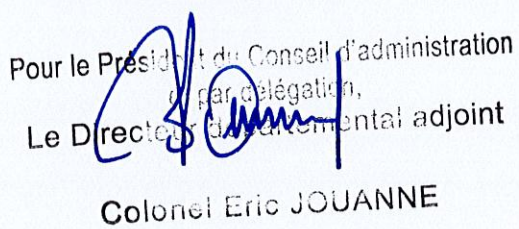 Pour le Président du Conseil d'administration
et par délégation,
Le Directeur départemental adjoint
Colonel Eric JOUANNE